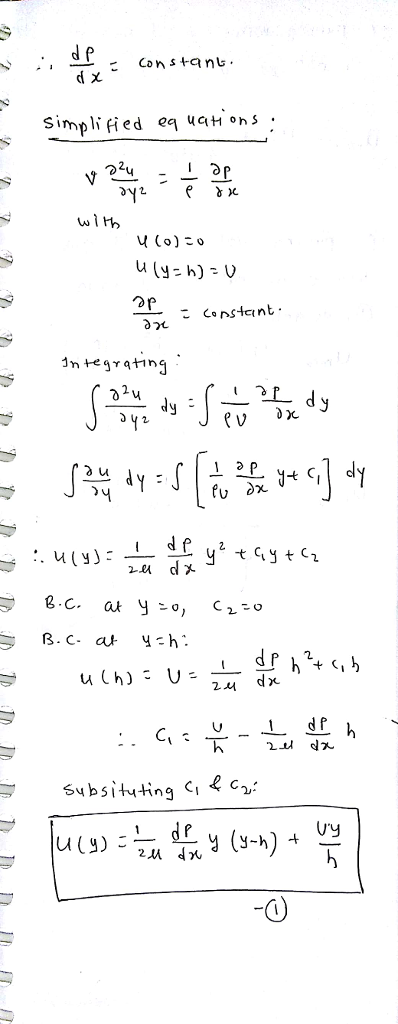 ∴ dP/dx = constant.
Simplified equations:
ν ∂²u/∂y² = 1/ρ ∂p/∂x
with
u(0)=0
u(y=h)=U
∂p/∂x = constant.
Integrating:
∫ ∂²u/∂y² dy = ∫ 1/ρν ∂p/∂x dy
∫ ∂u/∂y dy = ∫ [ 1/ρν ∂p/∂x y + C₁ ] dy
∴ u(y) = 1/2μ dP/dx y² + C₁y + C₂
B.C. at y=0, C₂=0
B.C. at y=h:
u(h) = U = 1/2μ dP/dx h² + C₁h
∴ C₁ = U/h - 1/2μ dP/dx h
Subsituting C₁ & C₂:
u(y) = 1/2μ dP/dx y (y-h) + Uy/h
-①